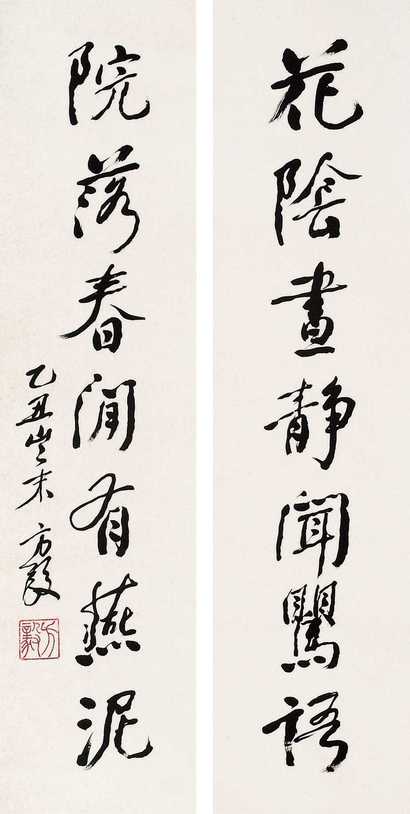 花陰晝靜聞鸎語
院落春閒有燕泥
乙丑歲末 方毅
方毅